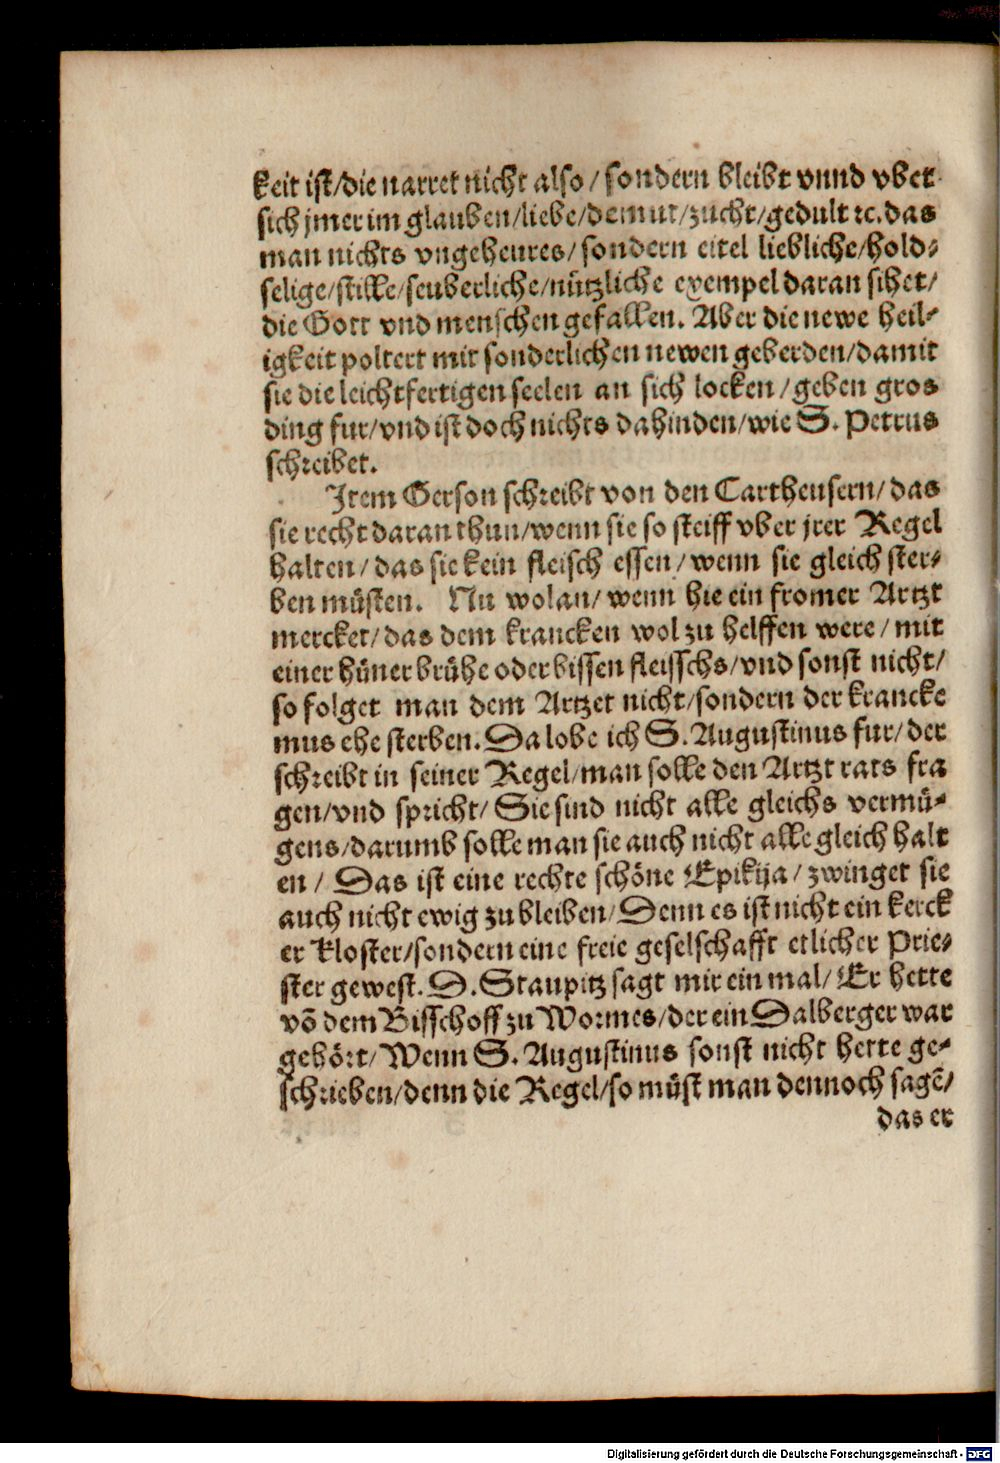 keit ist/die narret nicht also/ sondern bleibt vnnd vbet
sich jmer im glauben/liebe/demut/zucht/gedult ꝛc. das
man nichts vngeheures/ sondern eitel liebliche/hold⸗
selige/stille/seuberliche/nützliche exempel daran sihet/
die Gott vnd menschen gefallen. Aber die newe heil⸗
igkeit poltert mit sonderlichen newen geberden/damit
sie die leichtfertigen seelen an sich locken/geben gros
ding fur/vnd ist doch nichts dahinden/wie S. Petrus
schreibet.
Item Gerson schreibt von den Cartheusern/ das
sie recht daran thun/wenn sie so steiff vber jrer Regel
halten/ das sie kein fleisch essen/ wenn sie gleich ster⸗
ben müsten. Nu wolan/ wenn hie ein fromer Artzt
mercket/das dem krancken wol zu helffen were/ mit
einer hüner brühe oder bissen fleisschs/vnd sonst nicht/
so folget man dem Artzet nicht/sondern der krancke
mus ehe sterben. Da lobe ich S. Augustinus fur/ der
schreibt in seiner Regel/man solle den Artzt rats fra
gen/vnd spricht/ Sie sind nicht alle gleichs vermü⸗
gens/darumb solle man sie auch nicht alle gleich halt
en/ Das ist eine rechte schöne Epikija/ zwinget sie
auch nicht ewig zu bleiben/Denn es ist nicht ein kerck
er kloster/sondern eine freie geselschafft etlicher Prie⸗
ster gewest. D. Staupitz sagt mir ein mal/ Er hette
võ dem Bisschoff zu Wormes/der ein Dalberger war
gehört/Wenn S. Augustinus sonst nicht hette ge⸗
schrieben/denn die Regel/so müst man dennoch sagẽ/
das er
Digitalisierung gefördert durch die Deutsche Forschungsgemeinschaft - DFG